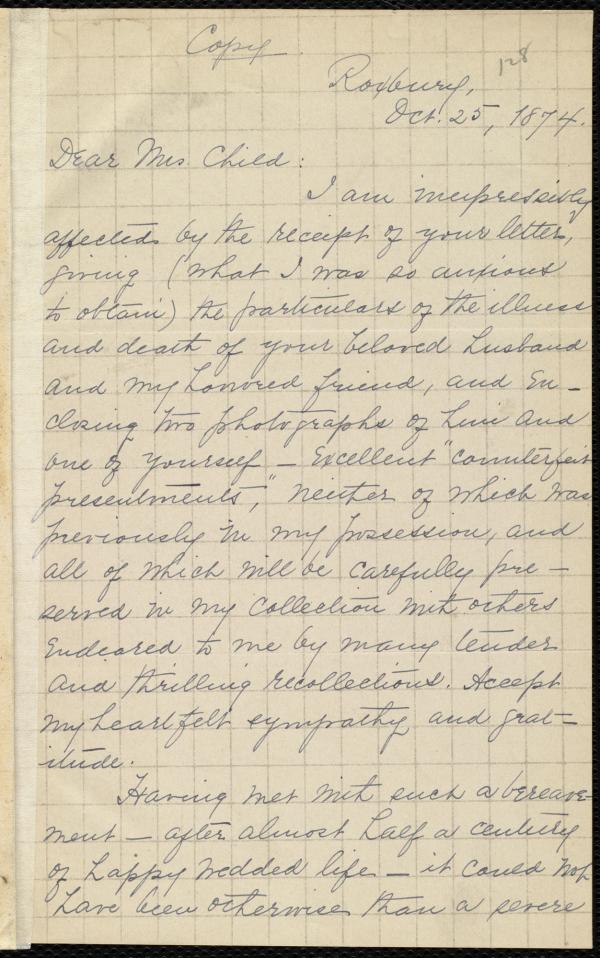 Copy.
128
Roxbury,
Oct. 25, 1874.
Dear Mrs. Child:
I am inexpressibly
affected by the receipt of your letter,
giving (what I was so anxious
to obtain) the particulars of the illness
and death of your beloved husband
and my honored friend, and en-
closing two photographs of him and
one of yourself — excellent "counterfeit
presentments," neither of which was
previously in my possession, and
all of which will be carefully pre-
served in my collection with others
endeared to me by many tender
and thrilling recollections. Accept
my heartfelt sympathy and grat-
itude.
Having met with such a bereave-
ment — after almost half a century
of happy wedded life — it could not
have been otherwise than a severe